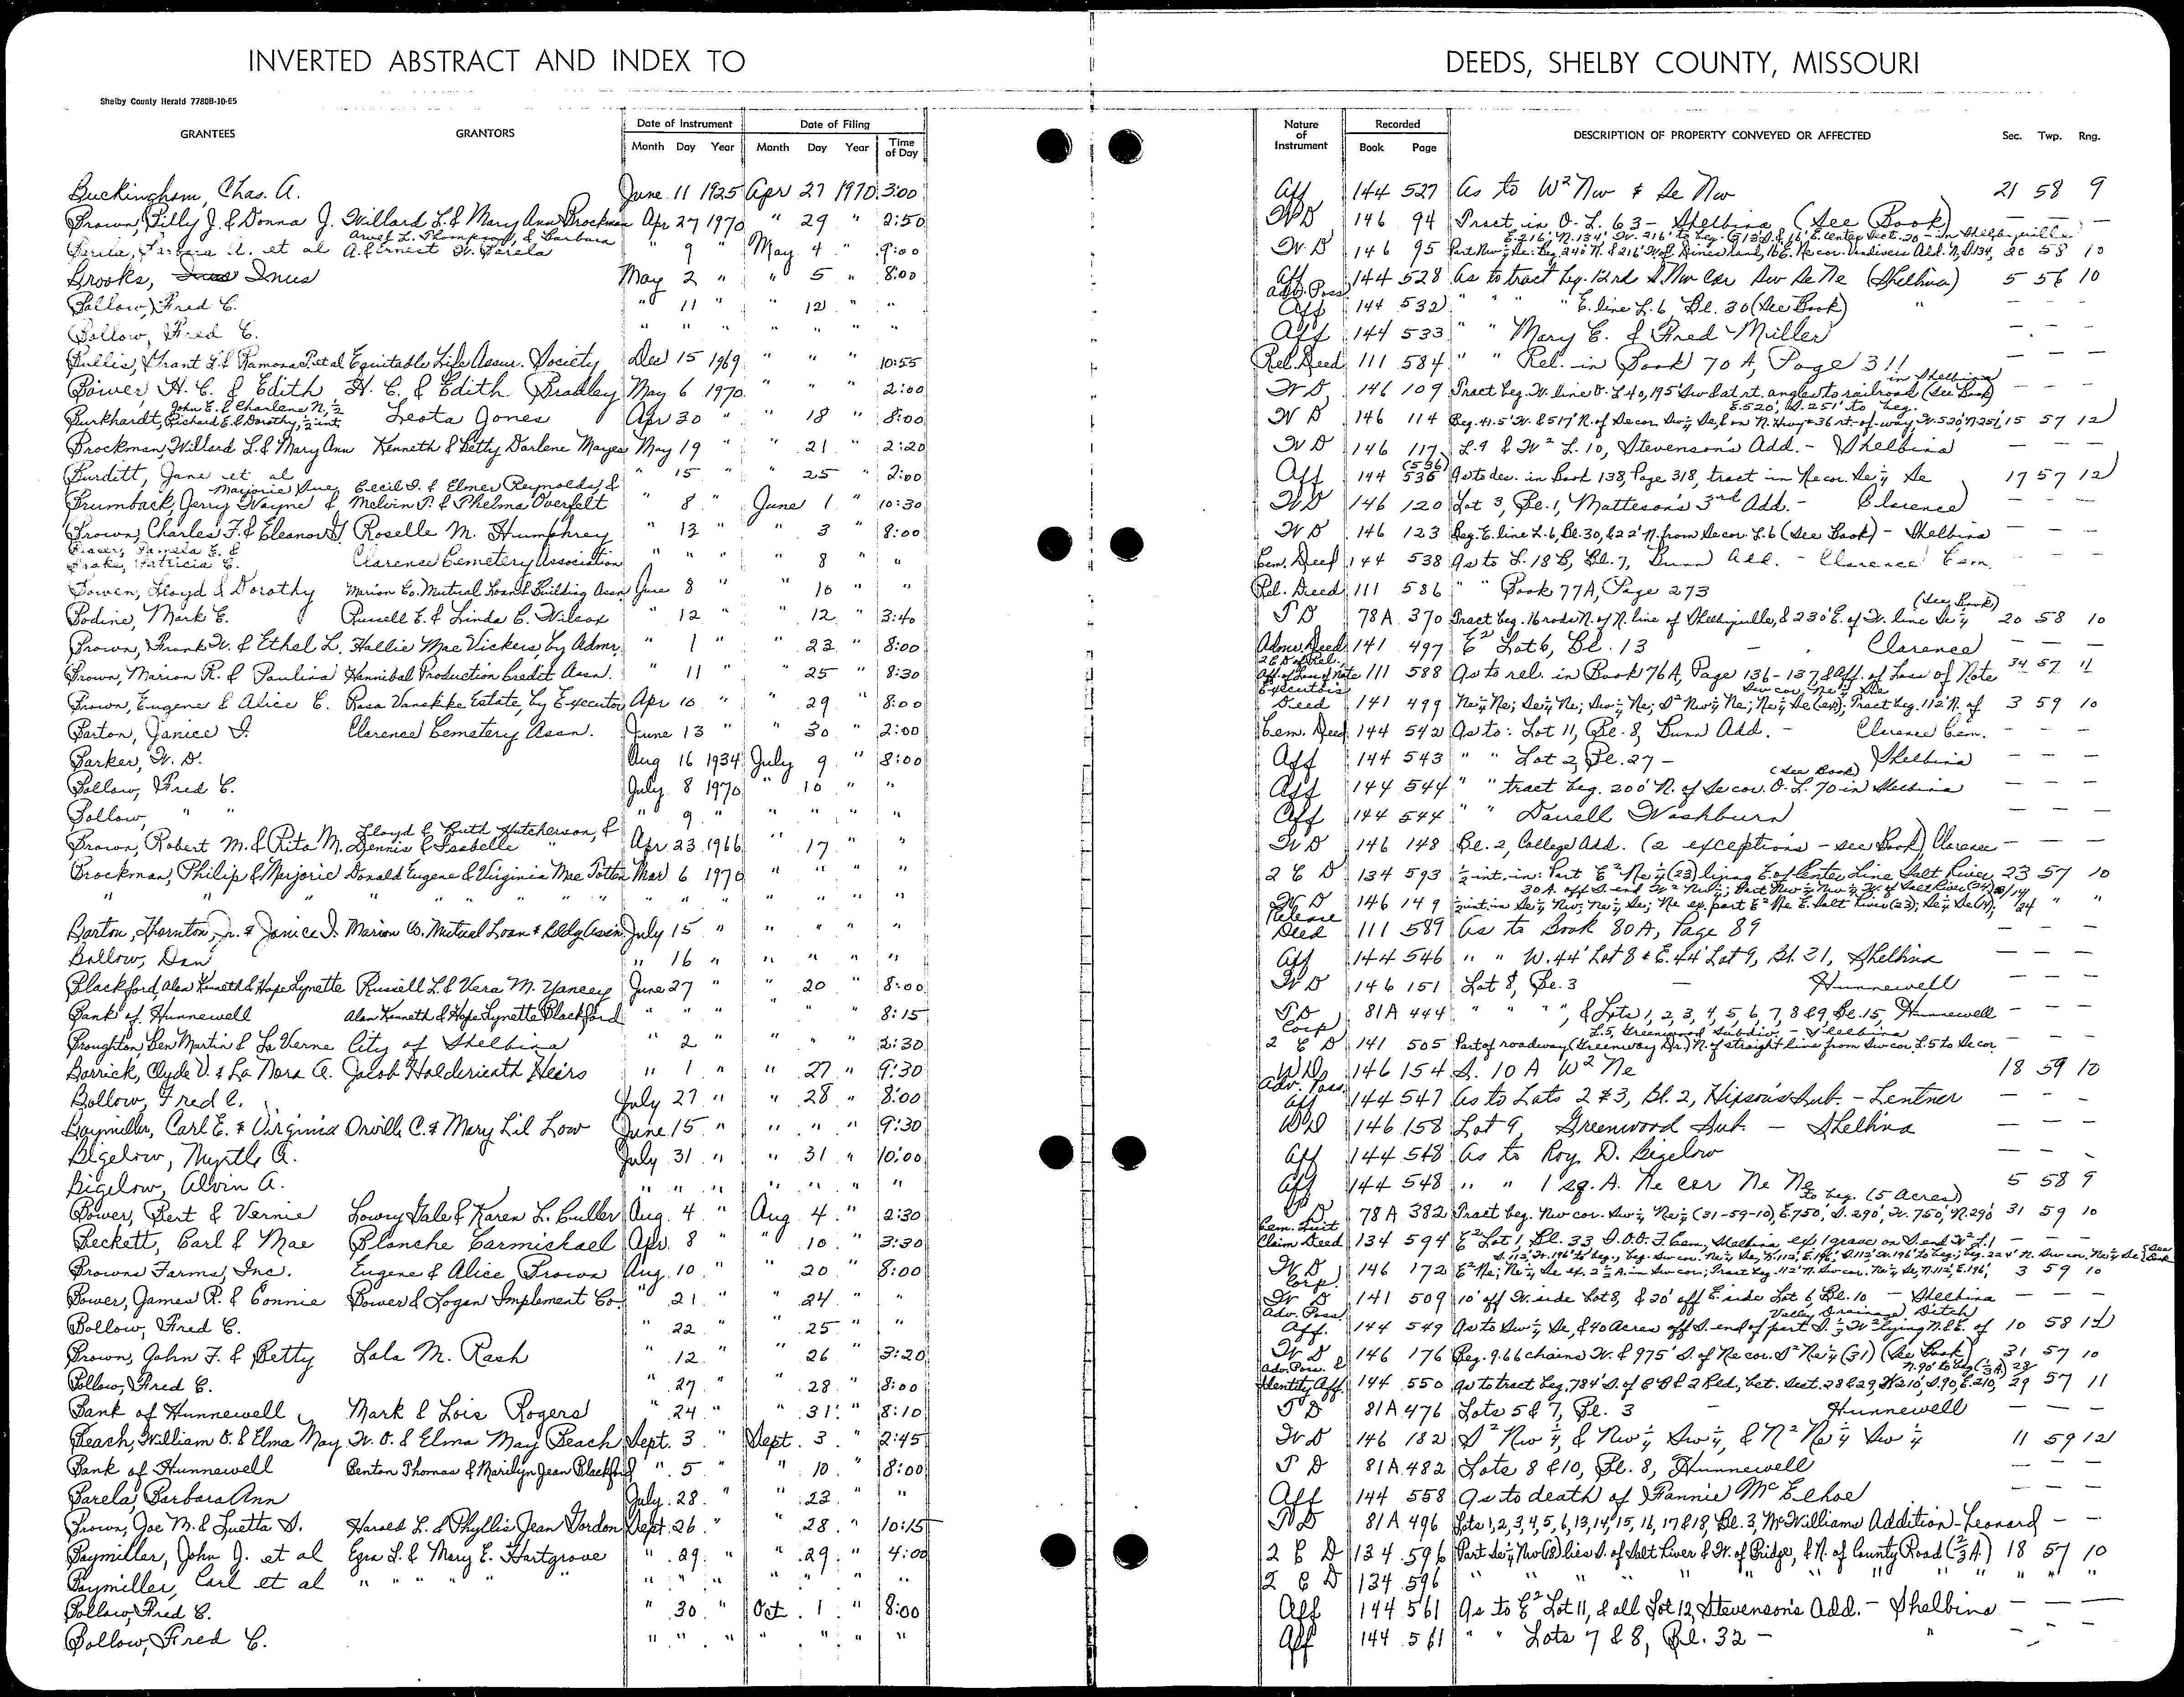 INVERTED ABSTRACT AND INDEX TO DEEDS, SHELBY COUNTY, MISSOURI
Shelby County Herald 7780B-10-65
GRANTEES GRANTORS Date of Instrument Date of Filing Nature of Instrument Recorded DESCRIPTION OF PROPERTY CONVEYED OR AFFECTED Sec. Twp. Rng.
Month Day Year Month Day Year Time of Day Book Page
Buckingham, Chas. A. June 11 1925 Apr 27 1970 3:00 Aff 144 527 As to W² Nw & Se Nw 21 58 9
Brown, Billy J. & Donna J. Willard L. & Mary Ann Brockman Apr 27 1970 " 29 " 2:50 WD 146 94 Tract in O. L. 63 - Shelbina (See Book) — — —
et al Arvel L. Thompson, & Barbara A. & Ernest W. Barela " 9 " May 4 " 9:00 W.D 146 95 20 58 10
Brooks, Inus May 2 " " 5 " 8:00 Aff 144 528 As to tract beg. 12rd S. Nw Cor Sw Se Ne (Shelbina) 5 56 10
Bollow, Fred C. " 11 " " 12 " " Adv. Poss Aff 144 532 " " " E. line L. 6, Bl. 30 (See Book) "
Bollow, Fred C. " " " " " " " Aff 144 533 " " Mary E. & Fred Miller — — —
Bullis, Grant L. & Ramona P. et al Equitable Life Assur. Society Dec 15 1969 " " " 10:55 Rel. Deed 111 584 " " Rel. in Book 70 A, Page 311 — — —
Bower, H. C. & Edith H. C. & Edith Bradley May 6 1970 " " " 2:00 WD 146 109 Tract beg. W. line O. L. 40, 195' Sw & at rt. angles to railroad (See Book) in Shelbina — — —
Burkhardt, John E. & Charlene N., ½ Richard E. & Dorothy, ½ int. Leota Jones Apr 30 " " 18 " 8:00 WD 146 114 Beg. 41.5' W. & 517' N. of Se cor. Sw¼ Se, & on N. Hwy #36 rt-of-way, W. 520', N. 251', E. 520', S. 251' to beg. 15 57 12
Brockman, Willard L. & Mary Ann Kenneth & Betty Darlene Mayes May 19 " 21 " 2:20 WD 146 117 L. 9 & W² L. 10, Stevenson's Add. - Shelbina — — —
Burditt, Jane et al " 15 " 25 " 2:00 Aff 144 535 (536) As to des. in Book 138, Page 318, tract in Ne cor. Se¼ Se 17 57 12
Brumback, Jerry Wayne & Marjorie Sue, Cecil D. & Elmer Reynolds, & Melvin P. & Thelma Overfelt " 8 " June 1 " 10:30 WD 146 120 Lot 3, Bl. 1, Matteson's 3rd Add. - Clarence — — —
Brown, Charles F. & Eleanor J. Roselle M. Humphrey " 13 " " 3 " 8:00 WD 146 123 Beg. E. line L. 6, Bl. 30, & 22' N. from Se cor. L. 6 (See Book) - Shelbina — — —
Pamela E. & Patricia C. Clarence Cemetery Association " " " " 8 " " Cem. Deed 144 538 As to L. 18 B, Bl. 7, Dunn Add. - Clarence Cem. — — —
Bowen, Floyd & Dorothy Marion Co. Mutual Loan & Building Assn. June 8 " " 10 " " Rel. Deed 111 586 " " Book 77A, Page 273
Bodine, Mark E. Russell E. & Linda C. Wilcox " 12 " " 12 " 3:40 TD 78A 370 Tract beg. 16 rods N. of N. line of Shelbyville, & 230' E. of W. line Se¼ (See Book) 20 58 10
Brown, Frank W. & Ethel L. Hallie Mae Vickers, by Admr. " 1 " " 23 " 8:00 Admr. Deed 141 497 E² Lot 6, Bl. 13 - Clarence — — —
Brown, Marion R. & Paulina Hannibal Production Credit Assn. " 11 " " 25 " 8:30 Aff. of Loss of Note 111 588 As to rel. in Book 76A, Page 136-137, & Aff. of Loss of Note 34 57 11
Brown, Eugene & Alice C. Rosa Vanskike Estate, by Executor Apr 10 " " 29 " 8:00 Executor's Deed 141 499 Ne¼ Ne; Se¼ Ne; Sw¼ Ne; S² Nw¼ Ne; Ne¼ Se (ex); Tract beg. 112' N. of Sw cor. Ne¼ Se 3 59 10
Barton, Janice I. Clarence Cemetery Assn. June 13 " " 30 " 2:00 Cem. Deed 144 542 As to: Lot 11, Bl. 8, Dunn Add. - Clarence Cem. — — —
Barker, W. D. Aug 16 1934 July 9 " 8:00 Aff 144 543 " " Lot 2, Bl. 27 - Shelbina — — —
Bollow, Fred C. July 8 1970 " 10 " " Aff 144 544 " " tract beg. 200' N. of Se cor. O. L. 70 in Shelbina (See Book) — — —
Bollow, " " " 9 " " " " " Aff 144 544 " " Darrell Washburn — — —
Brown, Robert M. & Rita M. Lloyd & Ruth Hutcherson, & Dennis & Isabelle " Apr 23 1966 " 17 " " WD 146 148 Bl. 2, College Add. (2 exceptions - see Book) Clarence — — —
Brockman, Philip & Marjorie Donald Eugene & Virginia Mae Totten Mar 6 1970 " " " " 2 C D 134 593 ½ int. in: Part E² Ne¼ (23) lying E. of Center Line Salt River 23 57 10
" " " " " " " " " " WD 146 149 ½ int. in Se¼ Nw; Ne¼ Se; Ne ex. part E² Ne E. Salt River (23); " "
Barton, Thornton, Jr. & Janice I. Marion Co. Mutual Loan & Bldg Assn July 15 " " " " " Release Deed 111 589 As to Book 80A, Page 89 — — —
Bollow, Dan " 16 " " " " " Aff 144 546 " " W. 44' Lot 8 & E. 44' Lot 9, Bl. 31, Shelbina — — —
Blackford, Alan Kenneth & Hope Lynette Russell L. & Vera M. Yancey June 27 " " 20 " 8:00 WD 146 151 Lot 8, Bl. 3 - Hunnewell — — —
Bank of Hunnewell Alan Kenneth & Hope Lynette Blackford " " " " " " 8:15 TD 81A 444 " " " , & Lots 1, 2, 3, 4, 5, 6, 7, 8 & 9, Bl. 15, Hunnewell — — —
Broughton, Ben Martin & La Verne City of Shelbina " 2 " " " " 2:30 Corp 2 C D 141 505 Part of roadway (Greenway Dr.) N. of straight line from Sw cor. L. 5 to Se cor. L. 5, Greenwood Subdiv. - Shelbina
Barrick, Clyde V. & La Nora A. Jacob Holderieath Heirs " 1 " " 27 " 9:30 WDs 146 154 S. 10 A W² Ne 18 59 10
Bollow, Fred C. July 27 " " 28 " 8:00 Adv. Poss. Aff 144 547 As to Lots 2 & 3, Bl. 2, Hixson's Sub. - Lentner — — —
Baymiller, Carl E. & Virginia Orville C. & Mary Lil Low June 15 " " " " 9:30 WD 146 158 Lot 9, Greenwood Sub. - Shelbina — — —
Bigelow, Myrtle A. July 31 " " 31 " 10:00 Aff 144 548 As to Roy D. Bigelow — — —
Bigelow, Alvin A. " " " " " " " Aff 144 548 " " 1 sq. A. Ne cor Ne Ne 5 58 9
Bower, Bert & Vernie Lowry Gale & Karen L. Buller Aug. 4 " Aug 4 " 2:30 TD 78A 382 Tract beg. Nw cor. Sw¼ Ne¼ (31-59-10), E. 750', S. 290', W. 750', N. 290' to beg. (5 Acres) 31 59 10
Beckett, Carl & Mae Blanche Carmichael Apr. 8 " " 10 " 3:30 Cem. Quit Claim Deed 134 594 E² Lot 1, Bl. 33 I.O.O.F. Cem, Shelbina ex 1 grave on S. end W² L. 1 — — —
Browns Farms, Inc. Eugene & Alice Brown Aug. 10 " " 20 " 8:00 WD 146 172 E² Ne; Ne¼ Se ex. 2½ A. in Sw cor; Tract beg. 112' N. Sw cor. Ne¼ Se, N. 112', E. 196', 3 59 10
Bower, James R. & Connie Bower & Logan Implement Co. " 21 " " 24 " " Corp. WD 141 509 10' off W. side Lot 8, & 20' off E. side Lot 6, Bl. 10 - Shelbina — — —
Bollow, Fred C. " 22 " " 25 " " Adv. Poss. Aff. 144 549 As to Sw¼ Se, & 40 Acres off S. end of part S. ½ W² lying N. & E. of Valley Drainage Ditch 10 58 12
Brown, John F. & Betty Lala M. Rash " 12 " " 26 " 3:20 WD 146 176 Beg. 9.66 chains W. & 975' S. of Ne cor. S² Ne¼ (31) (See Book) 31 57 10
Bollow, Fred C. " 27 " " 28 " 8:00 Adv. Poss. & Identity Aff. 144 550 As to tract beg. 784' S. of C B & 2 Rd., bet. Sect. 28 & 29, W. 210', S. 90', E. 210', N. 90' to beg. 28 29 57 11
Bank of Hunnewell Mark & Lois Rogers " 24 " " 31 " 8:10 TD 81A 476 Lots 5 & 7, Bl. 3 - Hunnewell — — —
Beach, William O. & Elma May W. O. & Elma May Beach Sept. 3 " Sept. 3 " 2:45 WD 146 182 S² Nw¼, & Nw¼ Sw¼, & N² Ne¼ Sw¼ 11 59 12
Bank of Hunnewell Benton Thomas & Marilyn Jean Blackford " 5 " " 10 " 8:00 TD 81A 482 Lots 8 & 10, Bl. 8, Hunnewell — — —
Barela, Barbara Ann July 28 " " 23 " " Aff 144 558 As to death of Fannie McElhoe — — —
Brown, Joe M. & Luetta S. Harold L. & Phyllis Jean Gordon Sept. 26 " " 28 " 10:15 TD 81A 496 Lots 1, 2, 3, 4, 5, 6, 13, 14, 15, 16, 17 & 18, Bl. 3, McWilliams Addition - Leonard — —
Baymiller, John J. et al Ezra L. & Mary E. Hartgrove " 29 " " 29 " 4:00 2 C D 134 596 Part Se¼ Nw (18) lies S. of Salt River & W. of Bridge, & N. of County Road (⅔ A.) 18 57 10
Baymiller, Carl et al " " " " " " " " " " " 2 C D 134 596 " " " " " " " " " "
Bollow, Fred C. " 30 " Oct. 1 " 8:00 Aff 144 561 As to E² Lot 11, & all Lot 12, Stevenson's Add. - Shelbina — — —
Bollow, Fred C. " " " " " " " Aff 144 561 " " Lots 7 & 8, Bl. 32 - " — — —